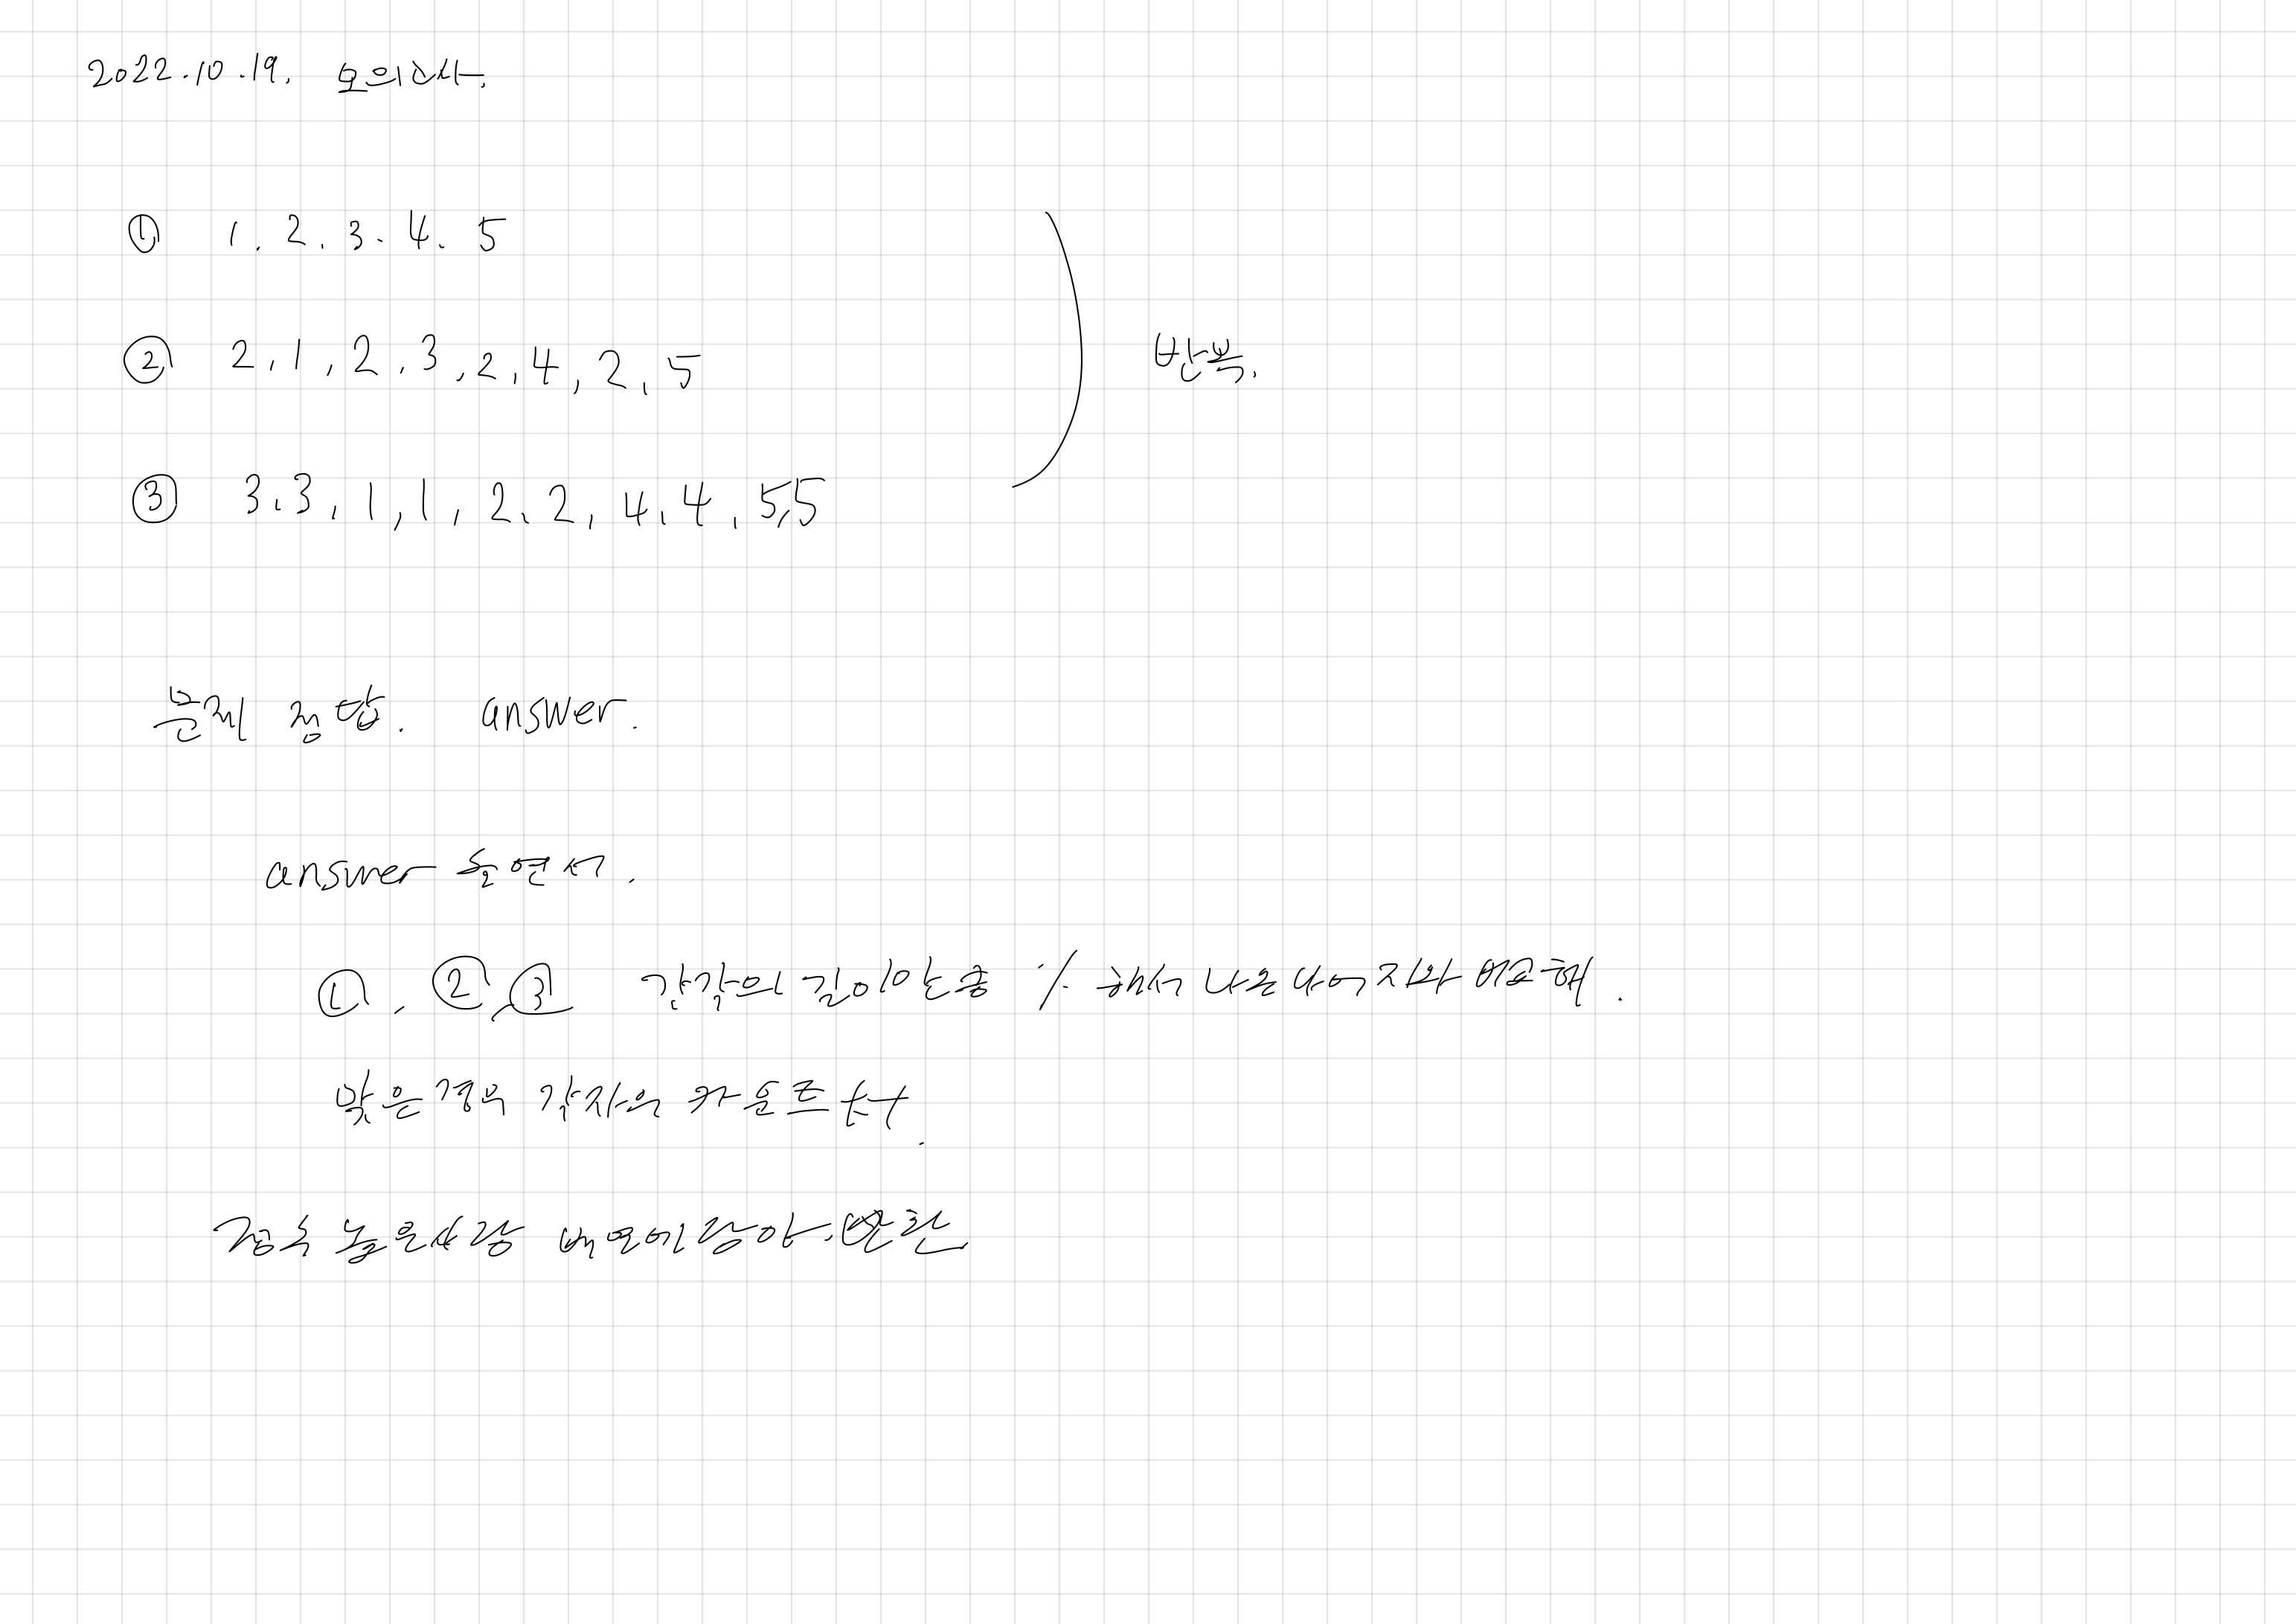 2022.10.19. 모의고사.
① 1. 2. 3. 4. 5
② 2, 1, 2, 3, 2, 4, 2, 5
반복.
③ 3, 3, 1, 1, 2, 2, 4, 4, 5, 5
문제 정답. answer.
answer 돌면서.
①, ②, ③ 각각의 길이만큼 % 해서 나온 나머지와 비교해.
맞은경우 각자의 카운트 ++.
점수 높은사람 배열에 담아. 반환.